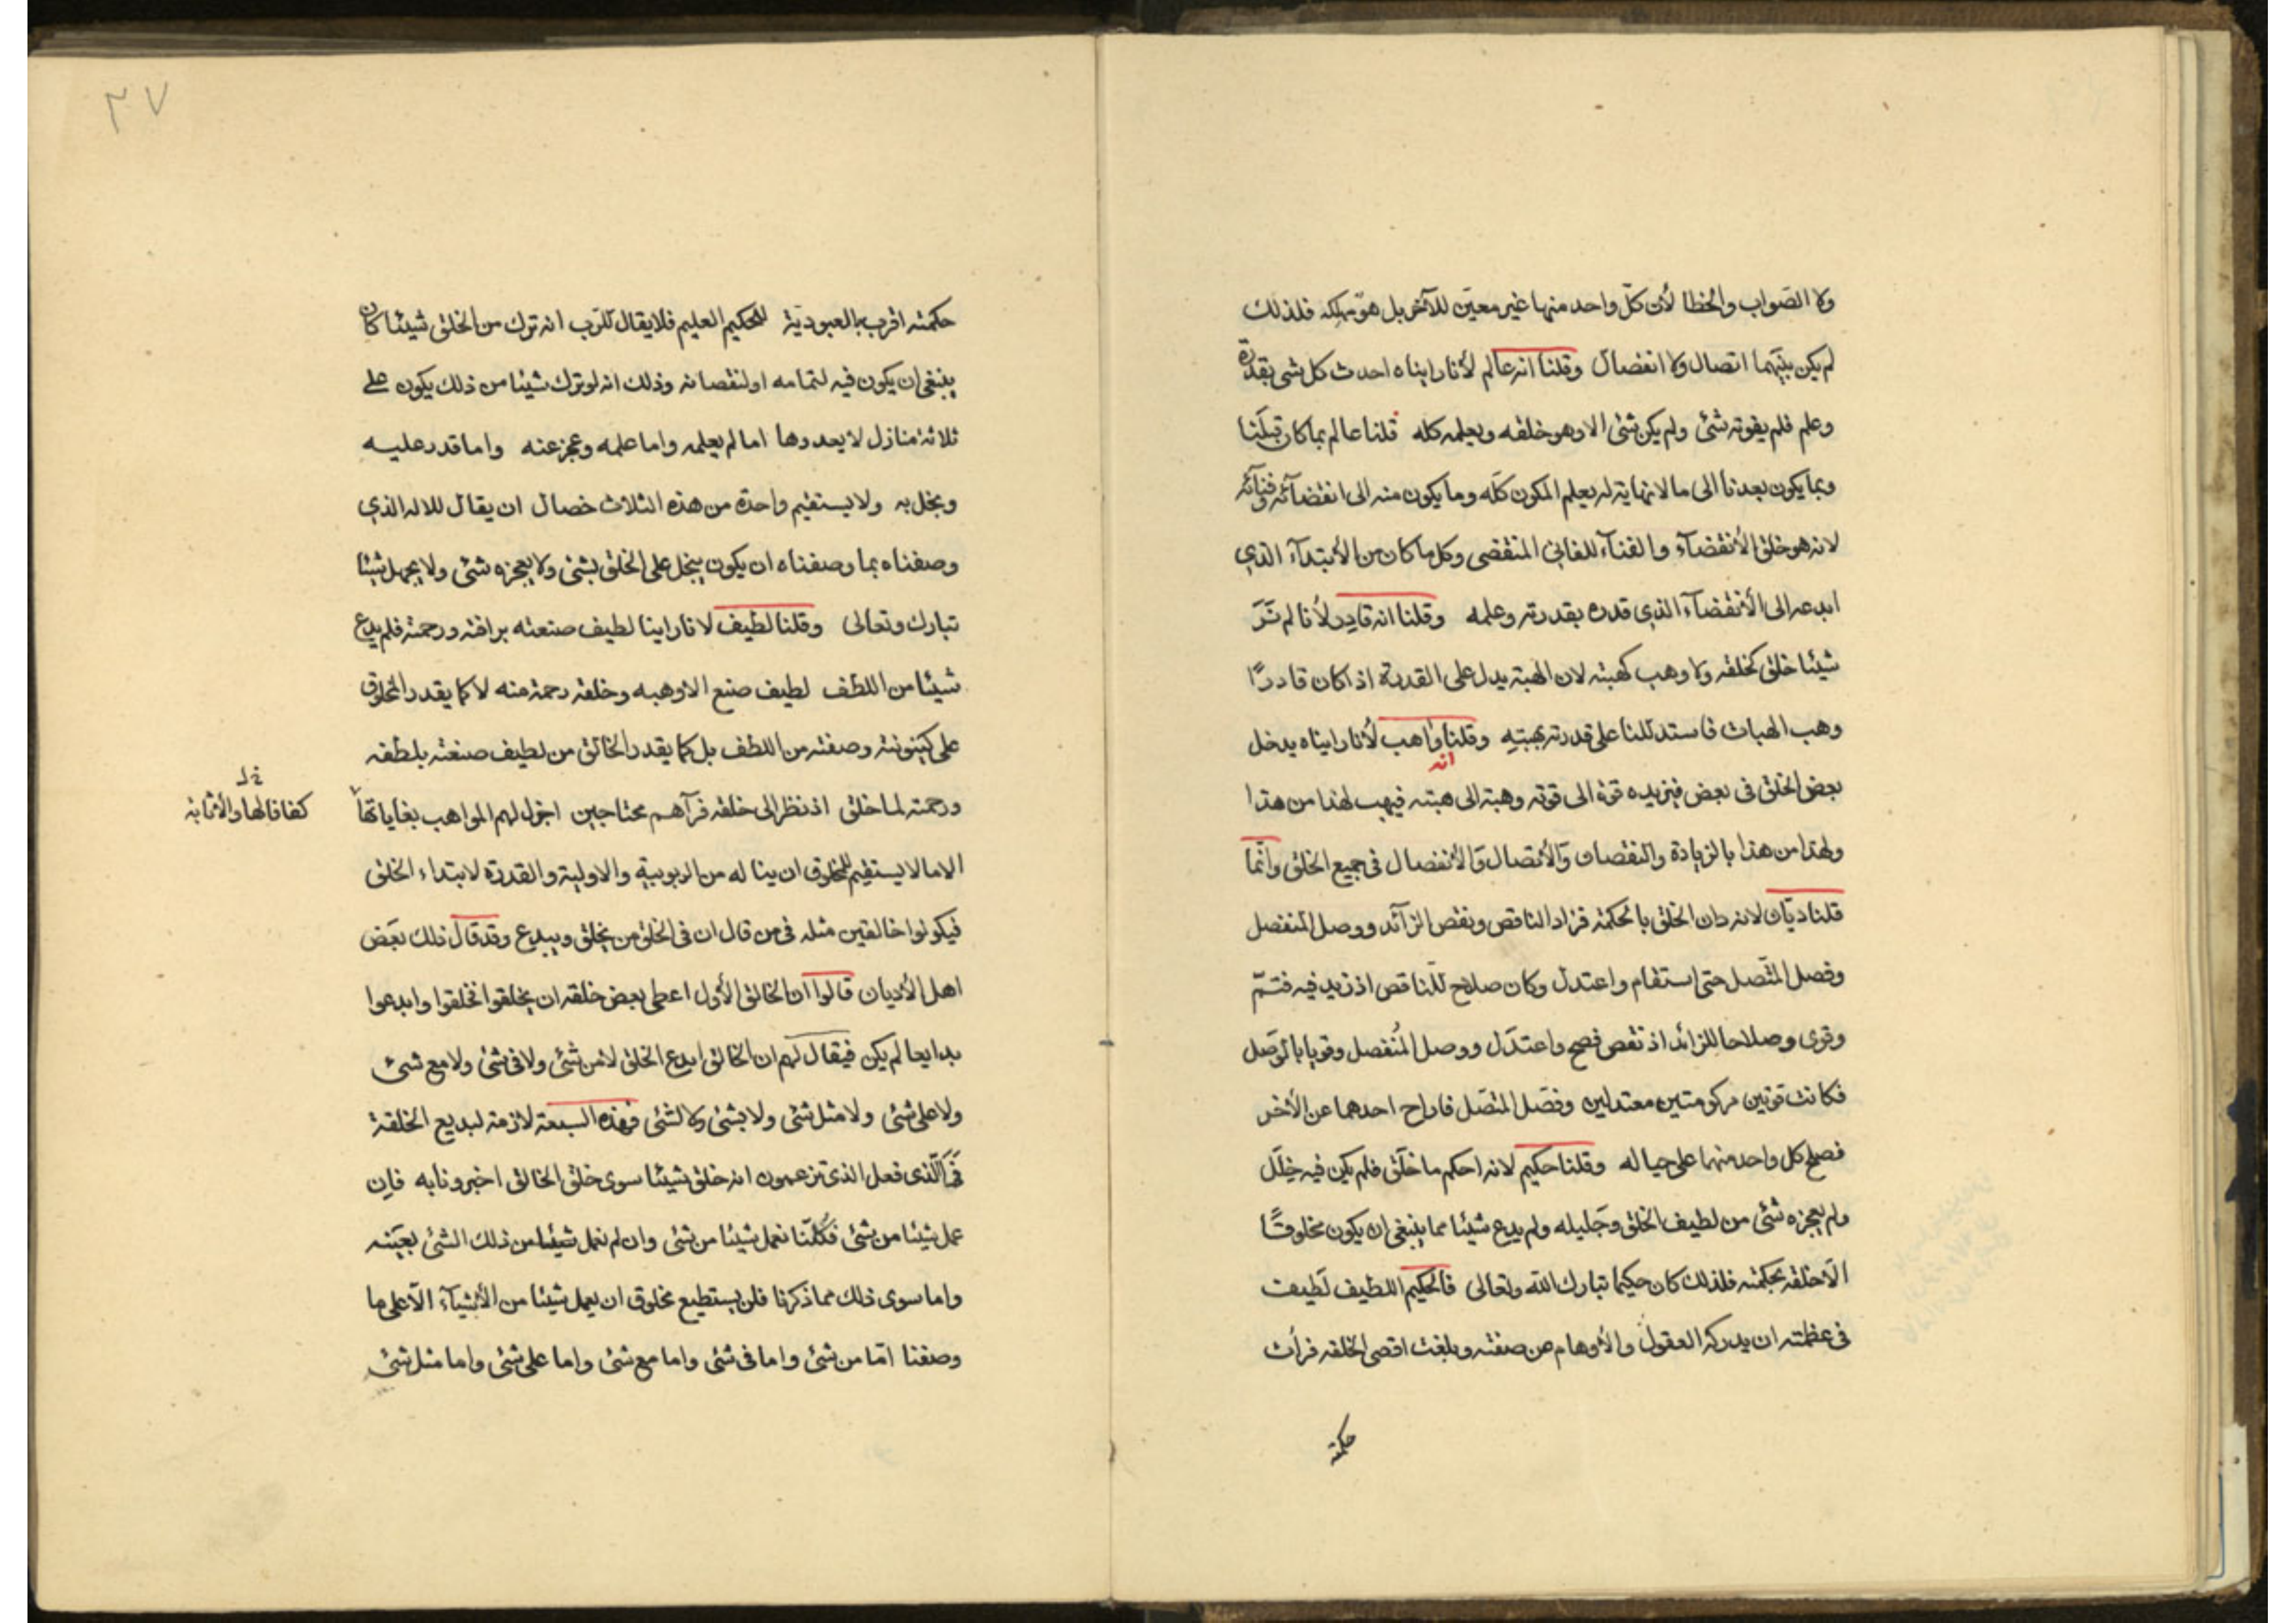 ولا الصّواب والخطا لأن كلّ واحد منها غير معيّن للآخر بل هو مهلكه فلذلك
لم يكن بينهما اتصال ولا انفصال وقلنا انه عالم لأنا رايناه احدث كل شى بقدرة
وعلم فلم يفوته شئ ولم يكن شئ الا وهو خلقه ويعلمه كله قلنا عالم بما كان قبلنا
وبما يكون بعدنا الى ما لا نهاية له يعلم المكون كلّه وما يكون منه الى انقضآئه وفنآئه
لانه هو خلق الأنقضآء والفنآء للفانى المنقضى وكل ما كان من الأبتدآء الذي
ابدعه الى الأنقضآء الذي قدره بقدرته وعلمه وقلنا انه قادر لأنا لم نَرَ
شيئا خلق كخلقه ولا وهب كهبته لان الهبة يدل على القدرة اذ كان قادرًا
وهب الهبات فاستدللنا على قدرته بهبتِهِ وقلنا انه واهب لأنا رايناه يدخل
بعض الخلق فى بعض فيزيده قوة الى قوته وهبة الى هبته فيهب لهذا من هذا
ولهذا من هذا بالزيادة والنقصان والأتصال والأنفصال فى جميع الخلق وانّما
قلنا ديّان لانه دان الخلق بالحكمة فزاد الناقص ونقص الزآئد ووصل المنفصل
وفصل المتّصل حتى استقام واعتدل وكان صلاح للناقص اذ زيد فيه فتمّ
وقوى وصلاحا للزائد اذ نقص فصح واعتدل ووصل المُنفصل وقويا بالوَصل
فكانت قوتين معتدلين وفصَل المتصّل فاراح احدهما عن الأخر
فصلح كل واحد منهما على حياله وقلنا حكيم لانه احكم ما خلق فلم يكن فيه خلَل
ولم يعجزه شئ من لطيف الخلق وجَليله ولم يدع شيئا مما ينبغى ان يكون مخلوقًا
الّا خلقه بحكمته فلذلك كان حكيما تبارك اللّه وتعالى فالحكيم اللطيف لَطيف
فى عظمته ان يدركه العقول والأوهام من صفته وبلغت اقصى الخلقه فرأت
حكمته
٣٧
حكمته اقرب بالعبوديّة للحكيم العليم فلا يقال للرّب انه ترك من الخلق شيئا كان
ينبغى ان يكون فيه لتمامه او لنقصانه وذلك انه لو ترك شيئا من ذلك يكون على
ثلاثة منازل لا يعدوها اما لم يعلمه واما علمه وعجز عنه واما قدر عليه
وبخل به ولا يستقيم واحدة من هذه الثلاث خصال ان يقال للاله الذي
وصفناه بما وصفناه ان يكون يبخل على الخلق بشئ ولا يعجزه شئ ولا يجهل شيئا
تبارك وتعالى وقلنا لطيف لانا راينا لطيف صنعته برافته ورحمته فلم يدع
شيئا من اللطف لطيف صنع الا وهبه وخلقه رحمة منه لا كما يقدر المخلوق
على كينونته وصفته من اللطف بل كما يقدر الخالق من لطيف صنعته بلطفه
ورحمته لما خلق اذ نظر الى خلقه فرآهم محتاجين اجزل لهم المواهب بغاياتها
خ ل
كفافا لها والأثابة
الا ما لا يستقيم للمخلوق ان يناله من الربوبية والاولية والقدرة لابتداء الخلق
فيكونوا خالقين مثله فى من قال ان فى الخلق من يخلق ويبدع وقد قال ذلك بعَض
اهل الأديان قالوا ان الخالق الأول اعطى بعض خلقه ان يخلقوا فخلقوا وابدعوا
بدايعا لم يكن فيقال لهم ان الخالق ابدع الخلق لا من شئ ولا فى شئ ولا مع شئ
ولا على شئ ولا مثل شئ ولا بشئ ولا لشئ فهذه السبعة لازمة لبديع الخلقة
فما الّذى فعل الذى تزعمون انه خلق شيئا سوى خلق الخالق اخبرونا به فان
عمل شيئا من شئ فكُلّنا نعمل شيئا من شئ وان لم نعمل شيئا من ذلك الشئ بعَينه
واما سوى ذلك مما ذكرنا فلن يستطيع مخلوق ان يعمل شيئا من الأشيآء الّا على ما
وصفنا امّا من شئ واما فى شئ واما مع شئ واما على شئ واما مثل شئ